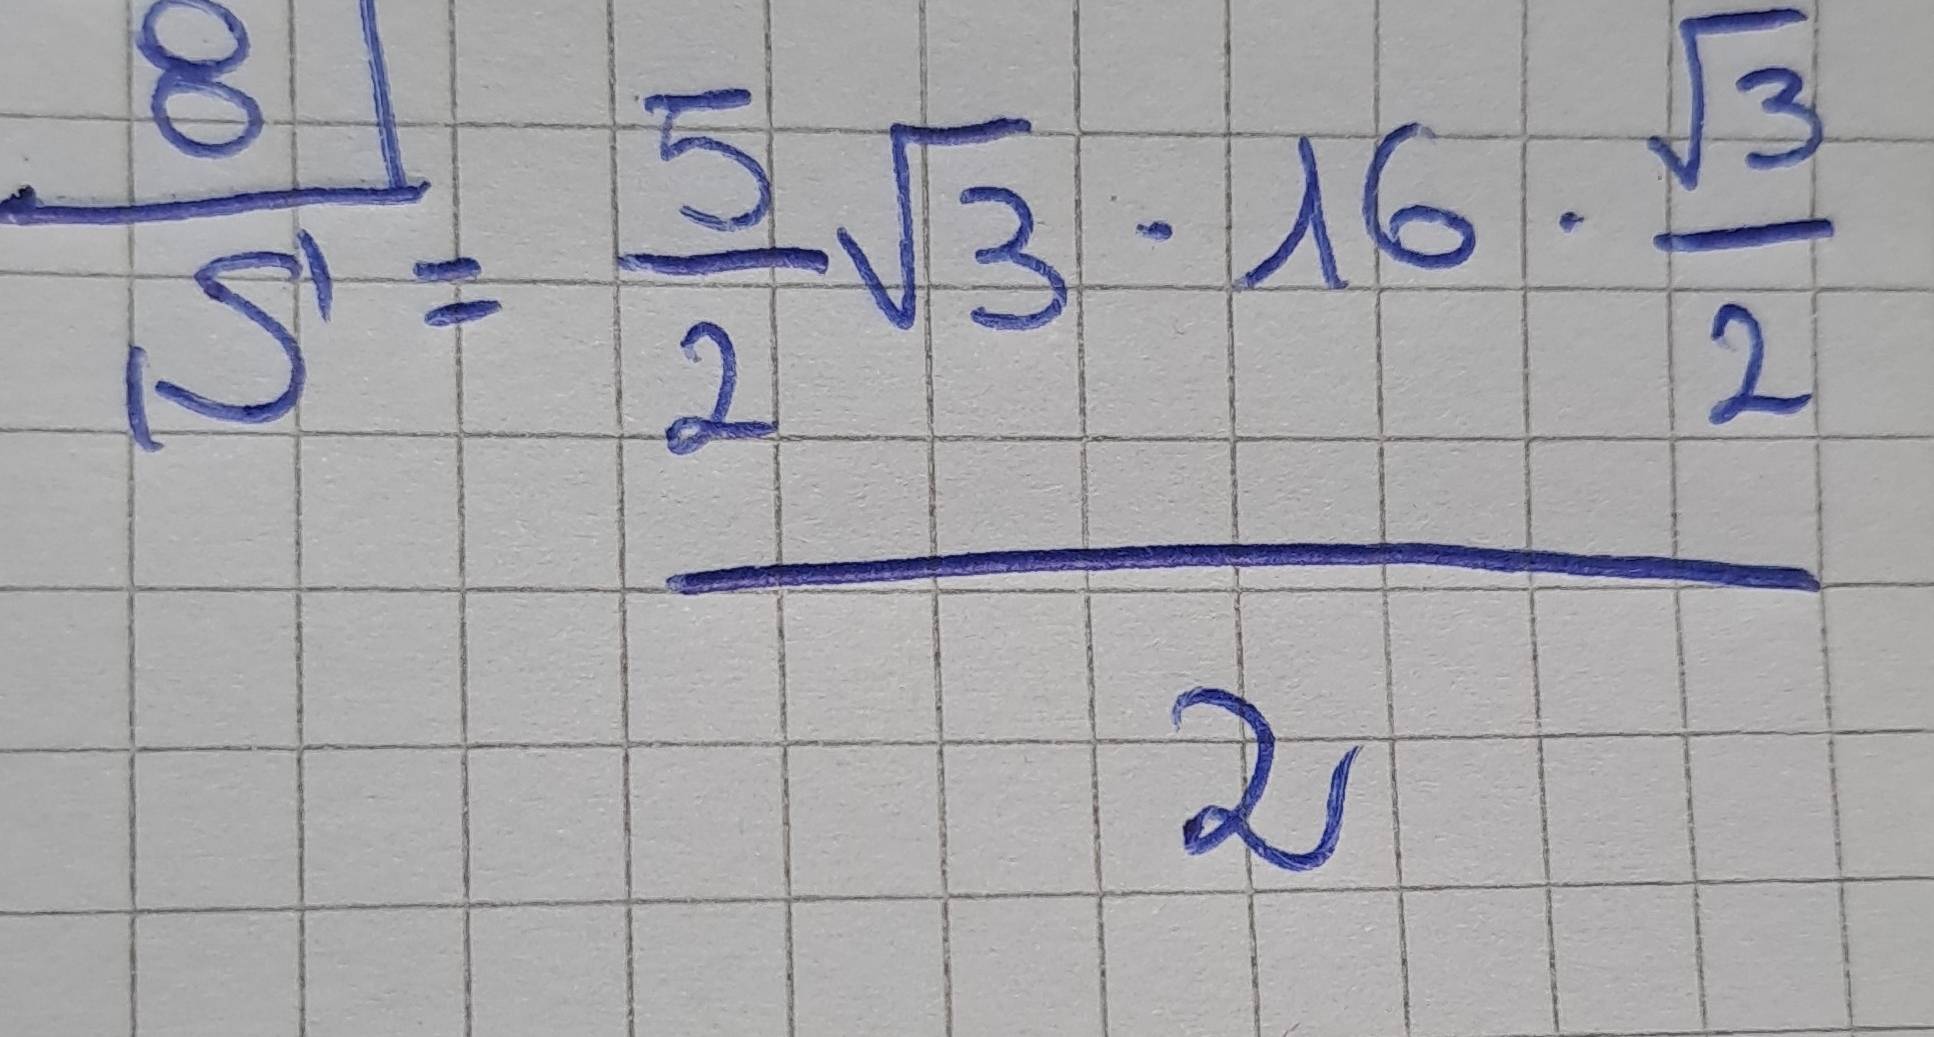 8
S' = 5/2 √3 · 16 · √3/2
2